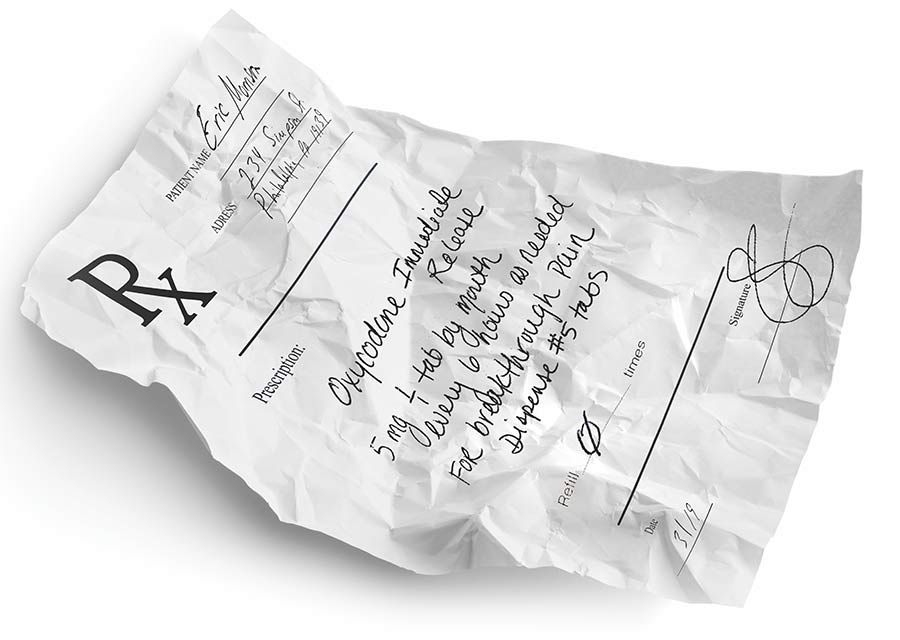 PATIENT NAME Eric
ADRESS 234 Simpson St
Rx
Prescription:
Oxycodone Immediate
Release
5 mg 1 tab by mouth
every 6 hours as needed
For breakthrough pain
Dispense #5 tabs
Refill Ø times
Date 3/19
Signature